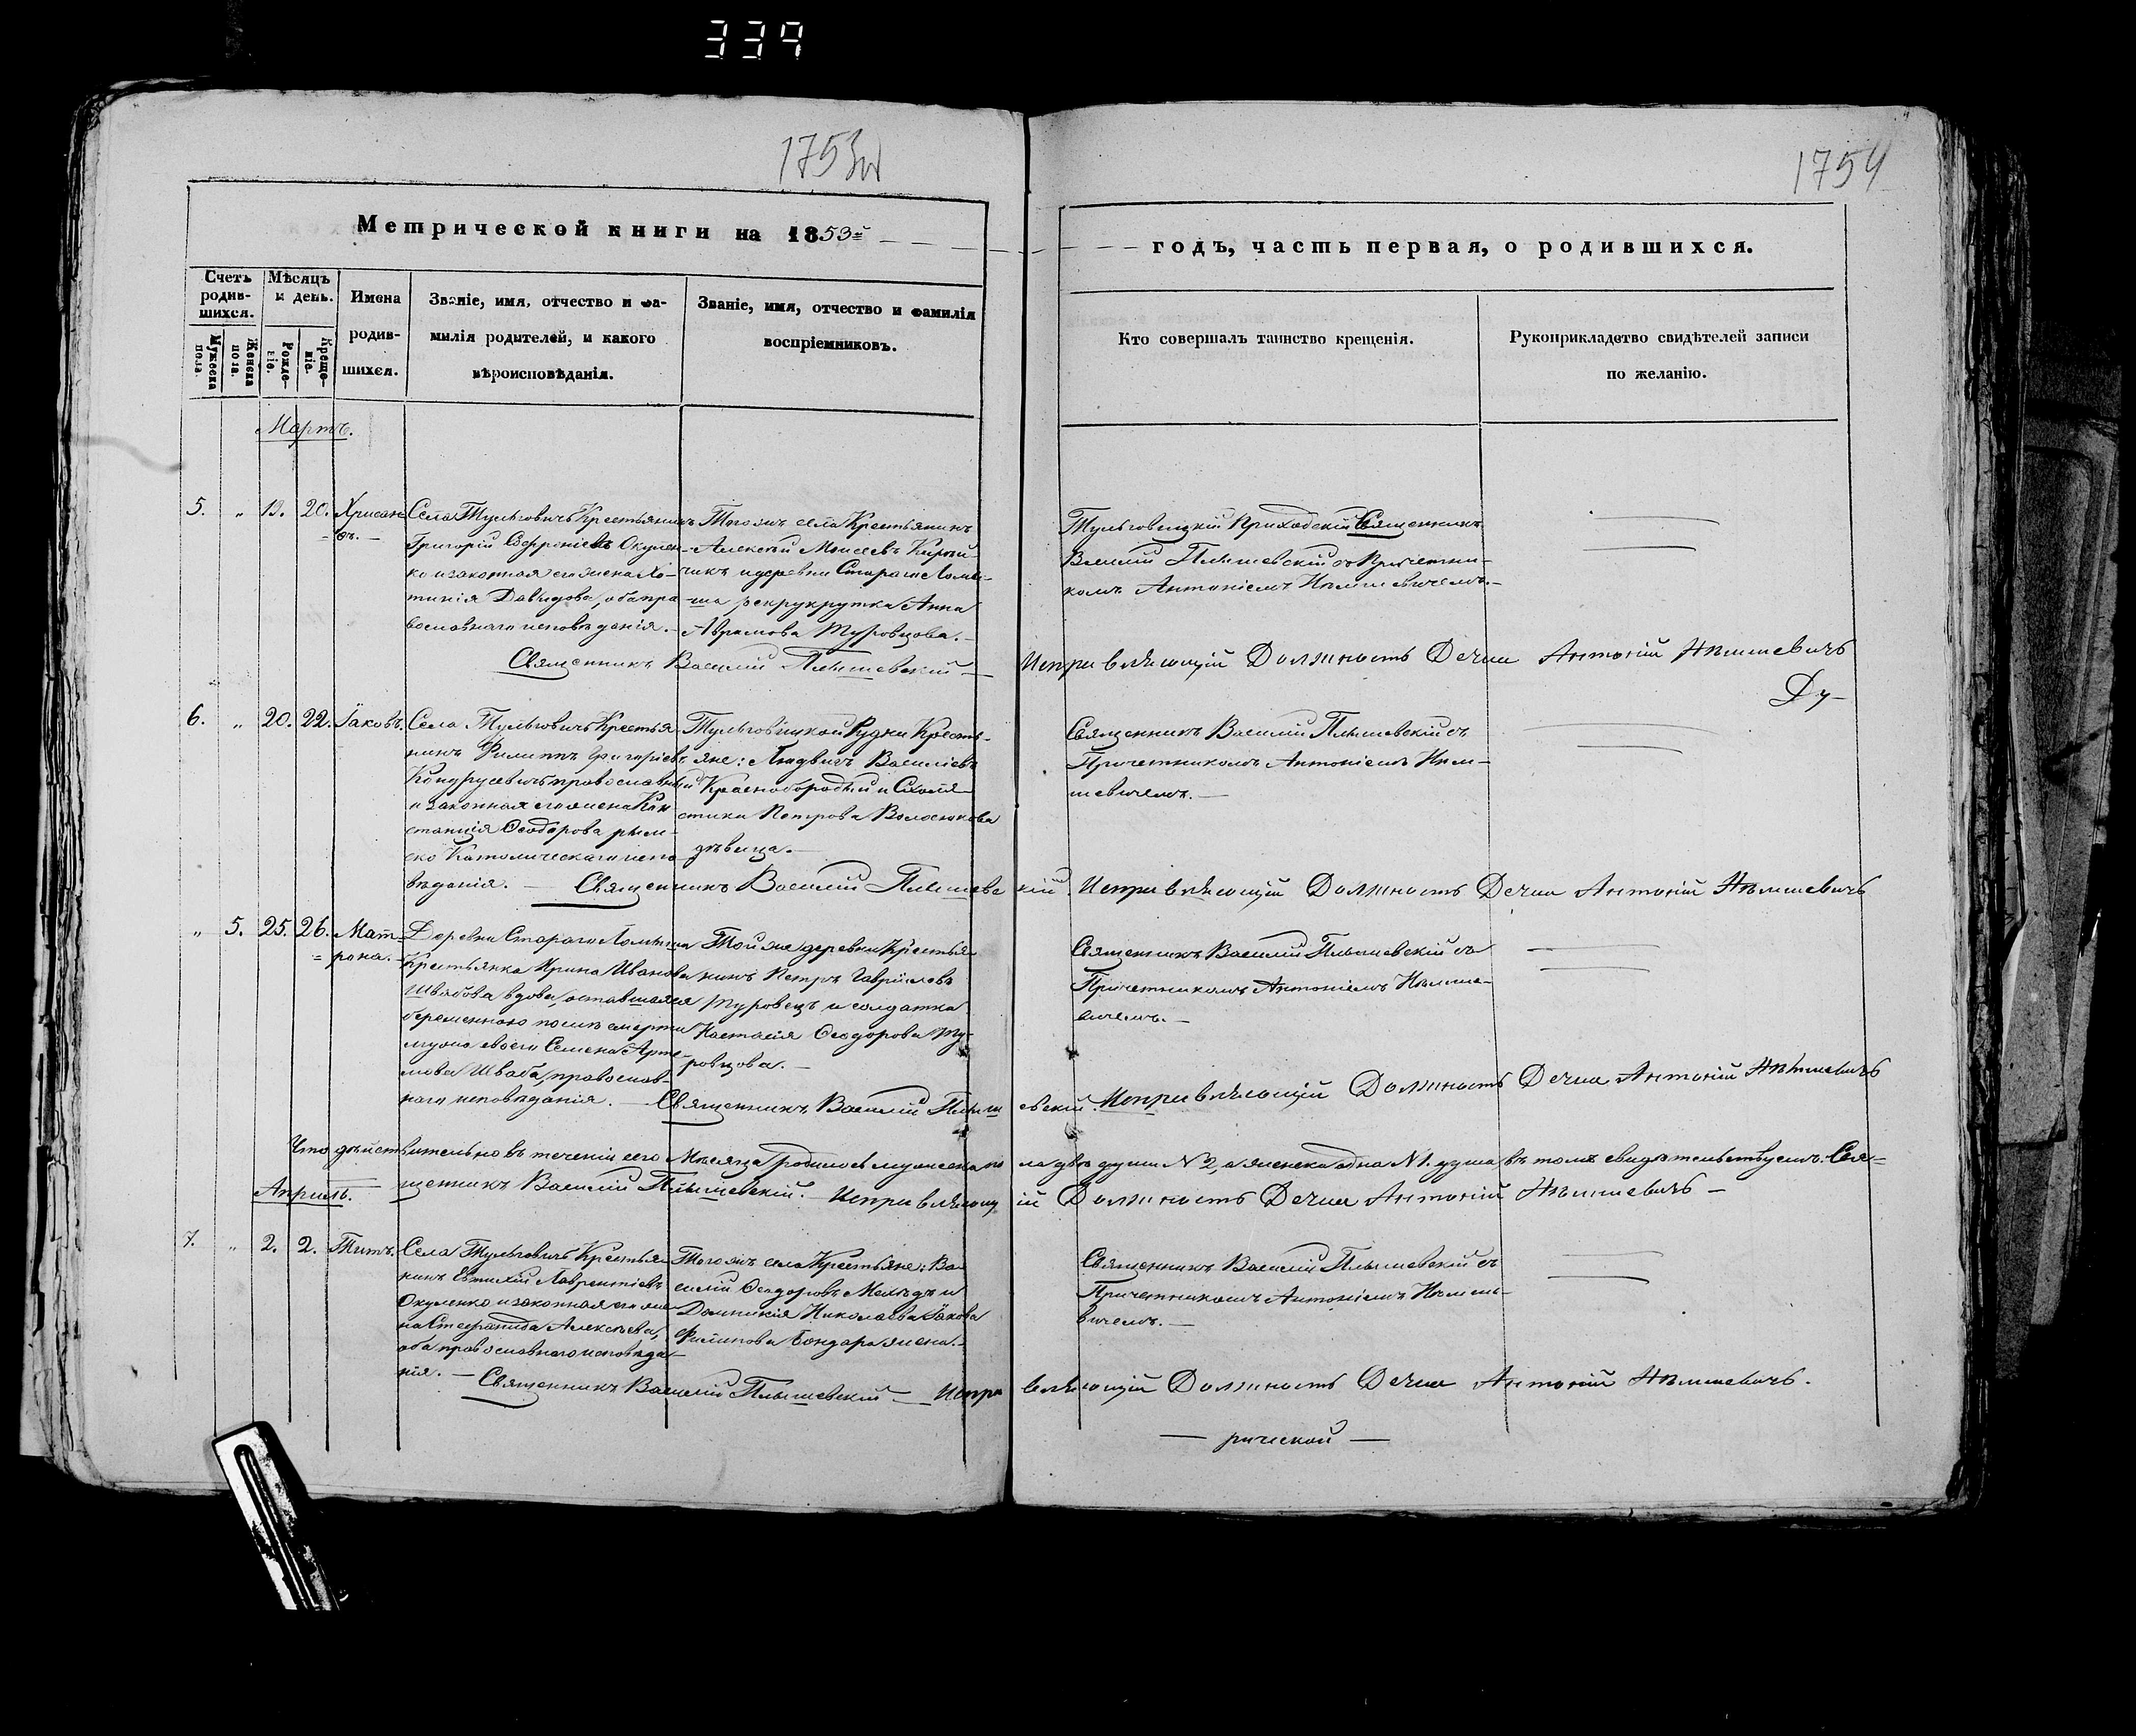 339
1753об
1754
Метрической книги на 1853й
годъ, часть первая, о родившихся.
Счетъ родив-шихся.
Мужеска пола.
Женска пола.
Мѣсяцъ и день.
Рожде-ніе.
Креще-ніе.
Имена
родив-
шихся.
Званіе, имя, отчество и фа-
милія родителей, и какого
вѣроисповѣданія.
Званіе, имя, отчество и фамилія
воспріемниковъ.
Кто совершалъ таинство крещенія.
Рукоприкладство свидѣтелей записи
по желанію.
Мартъ.
5. " 19. 20. Хрисан-
ѳъ.
Села Тульговичъ Крестьянинъ
Григорій Софроніевъ Окулен-
ко и законная его жена Хо-
тинія Давидова, оба пра-
вославнаго исповѣданія.
Тогожъ села Крестьянинъ
Алексѣй Моисеевъ
чикъ и деревни Стараго Ломы-
ша рекрукрутка Анна
Аврамова Туровцова.
Тульговицкій Приходскій Священникъ
Василій Плышевскій съ Причетни-
комъ Антоніемъ Нѣмшевичемъ.
Священникъ Василій Плышевскій
Исправляющій Должность Дьячка Антоній Нѣмшевичъ
Ду-
6. " 20. 22. Іаковъ.
Села Тульговичъ Крестья-
нинъ Филиппъ Григоріевъ
Кондрусевичъ православный
и законная его жена Кон-
станція Ѳеодорова рим-
ско Католическаго испо-
вѣданія.
Тульговицкой Рудни Кресть-
яне: Людвигъ Василіевъ
Краснобородый и Схола-
стика Петрова Волосюкова
дѣвица.
Священникъ Василій Плышевскій съ
Причетникомъ Антоніемъ Нѣм-
шевичемъ.
Священникъ Василій Плышевскій. Исправляющій Должность Дьячка Антоній Нѣмшевичъ
" 5. 25. 26. Мат-
рона.
Деревни Стараго Ломыша
Крестьянка Ирина Иванова
Швабова вдова, оставшаяся
беременною послѣ смерти
мужа своего Семена Арте-
мова Шваба, православ-
наго исповѣданія.
Той же деревни Крестья-
нинъ Петръ Гавріиловъ
Туровецъ и солдатка
Настасія Ѳеодорова Ту-
ровцова.
Священникъ Василій Плышевскій съ
Причетникомъ Антоніемъ Нѣмше-
вичемъ.
Священникъ Василій Плышевскій. Исправляющій Должность Дьячка Антоній Нѣмшевичъ
Что дѣйствительно въ теченіи сего Мѣсяца родилось мужеска пола двѣ души N 2, а женска одна N 1. душа, въ томъ свидѣтельствуемъ. Свя-
щенникъ Василій Плышевскій. Исправляющій Должность Дьячка Антоній Нѣмшевичъ
Апрѣль.
7. " 2. 2. Титъ.
Села Тульговичъ Крестья-
нинъ Евтихій Лаврентіевъ
Окуленко и законная его же-
на Стефанида Алексѣева,
оба православнаго исповѣда-
нія.
Тогожъ села Крестьяне: Ва-
силій Ѳеодоровъ Мехѣдъ и
Домникія Николаева Іакова
Филипова Бондара жена.
Священникъ Василій Плышевскій съ
Причетникомъ Антоніемъ Нѣмше-
вичемъ.
Священникъ Василій Плышевскій Исправляющій Должность Дьячка Антоній Нѣмшевичъ.
рической